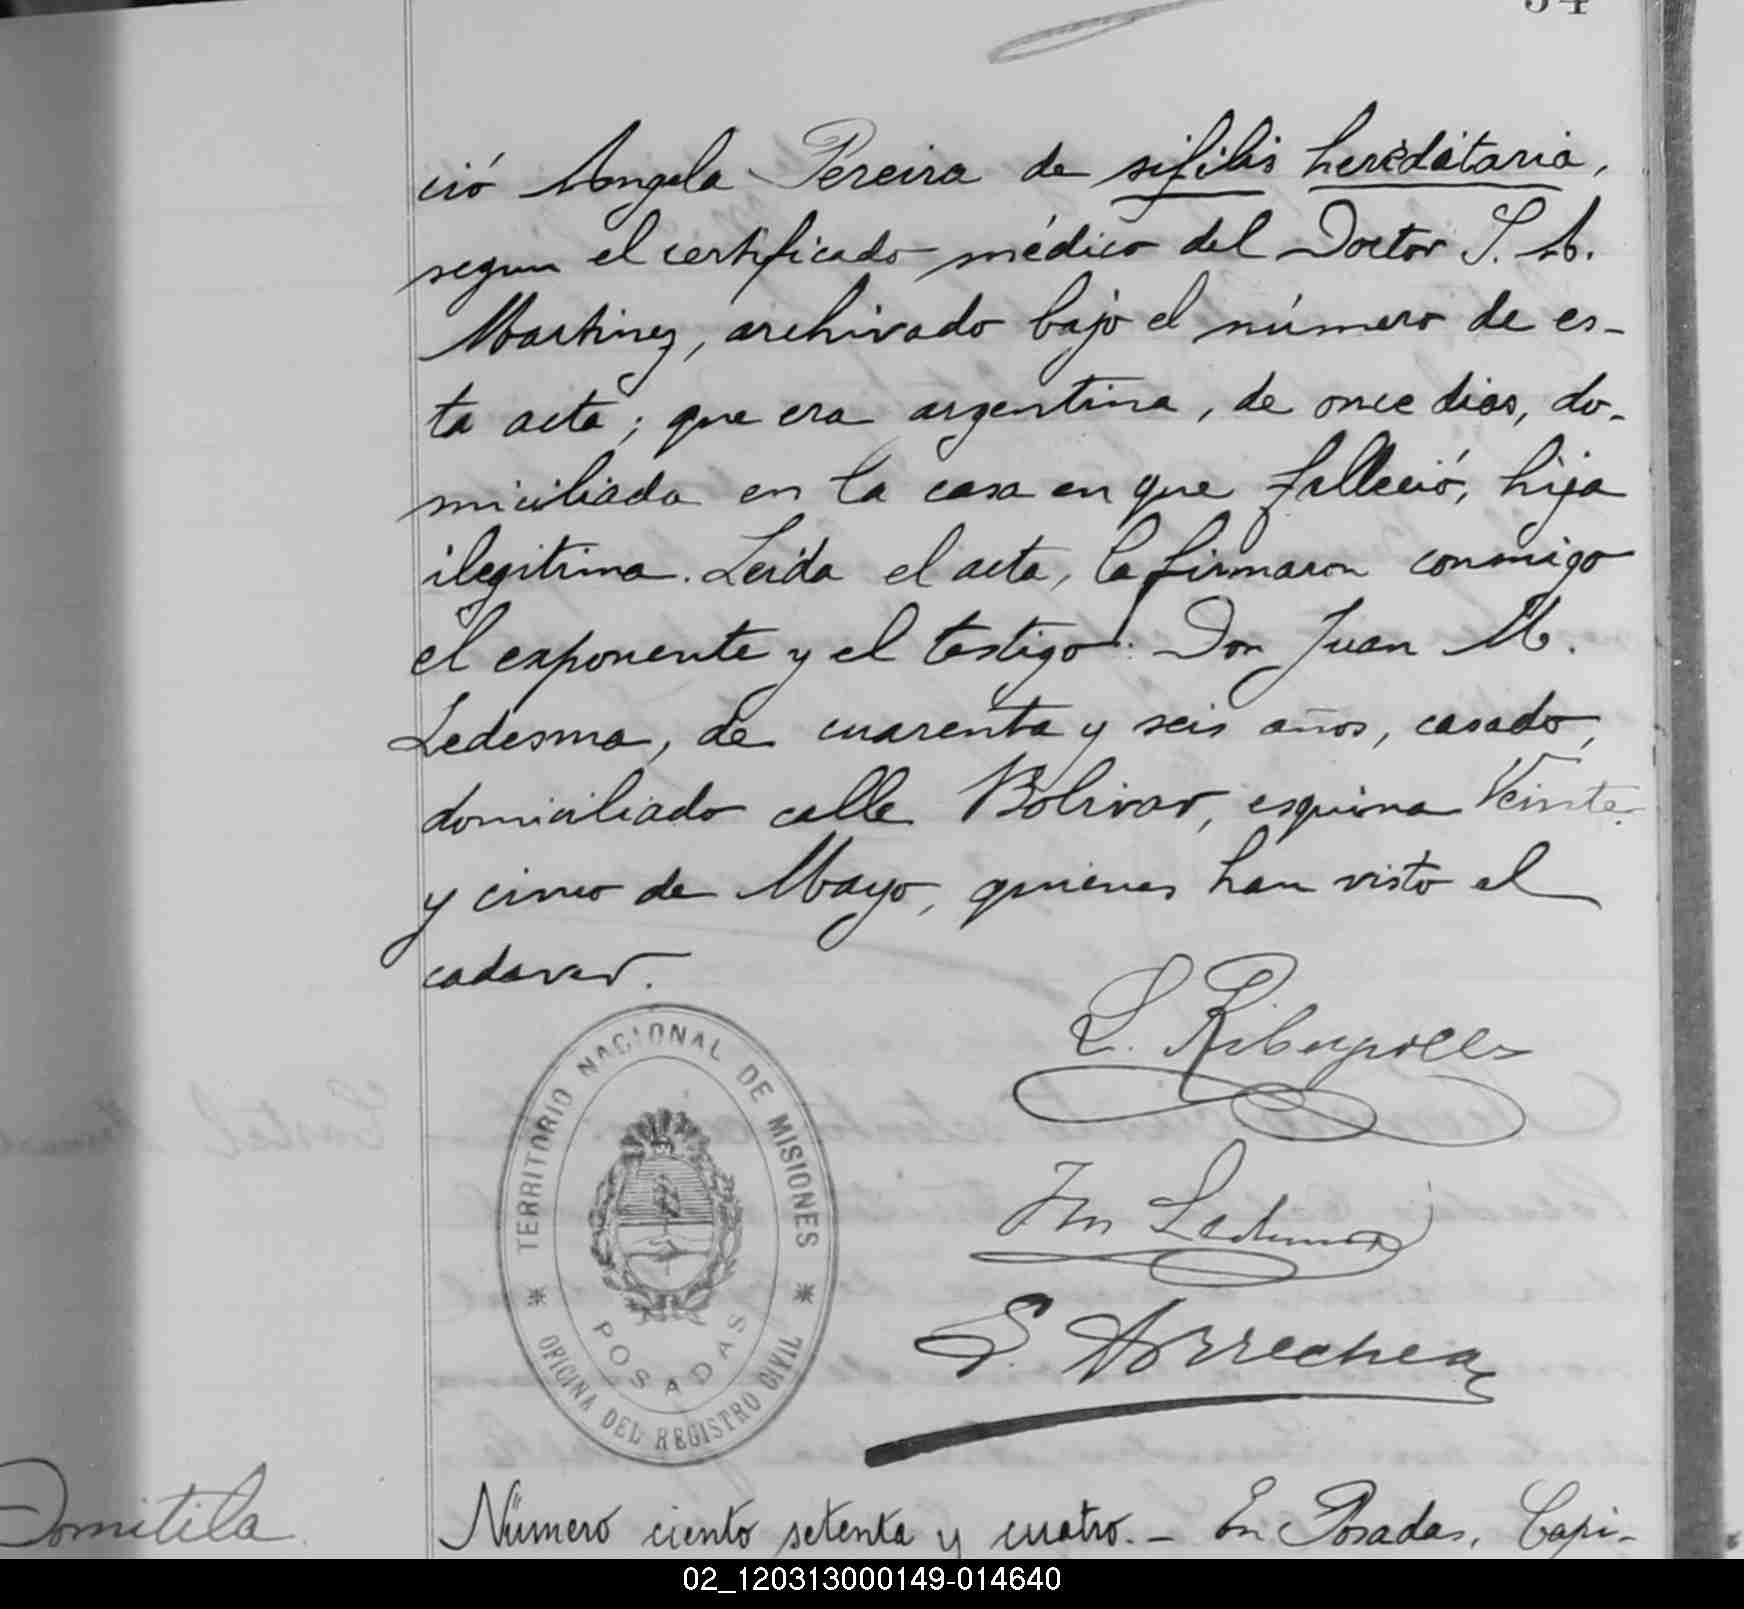 54
ció Angela Pereira de sifilis hereditaria,
segun el certificado médico del Doctor S. A.
Martinez, archivado bajo el número de es-
ta acta; que era argentina, de once dias, do-
miciliada en la casa en que falleció, hija
ilegitima. Leida el acta, la firmaron conmigo
el exponente y el testigo: Don Juan M.
Ledesma, de cuarenta y seis años, casado,
domiciliado calle Bolivar, esquina Veinte
y cinco de Mayo, quienes han visto el
cadaver.
Jn Ledesma
S. Arrechea
TERRITORIO NACIONAL DE MISIONES
POSADAS
OFICINA DEL REGISTRO CIVIL
Domitila
Número ciento setenta y cuatro.- En Posadas, Capi-
02_120313000149-014640